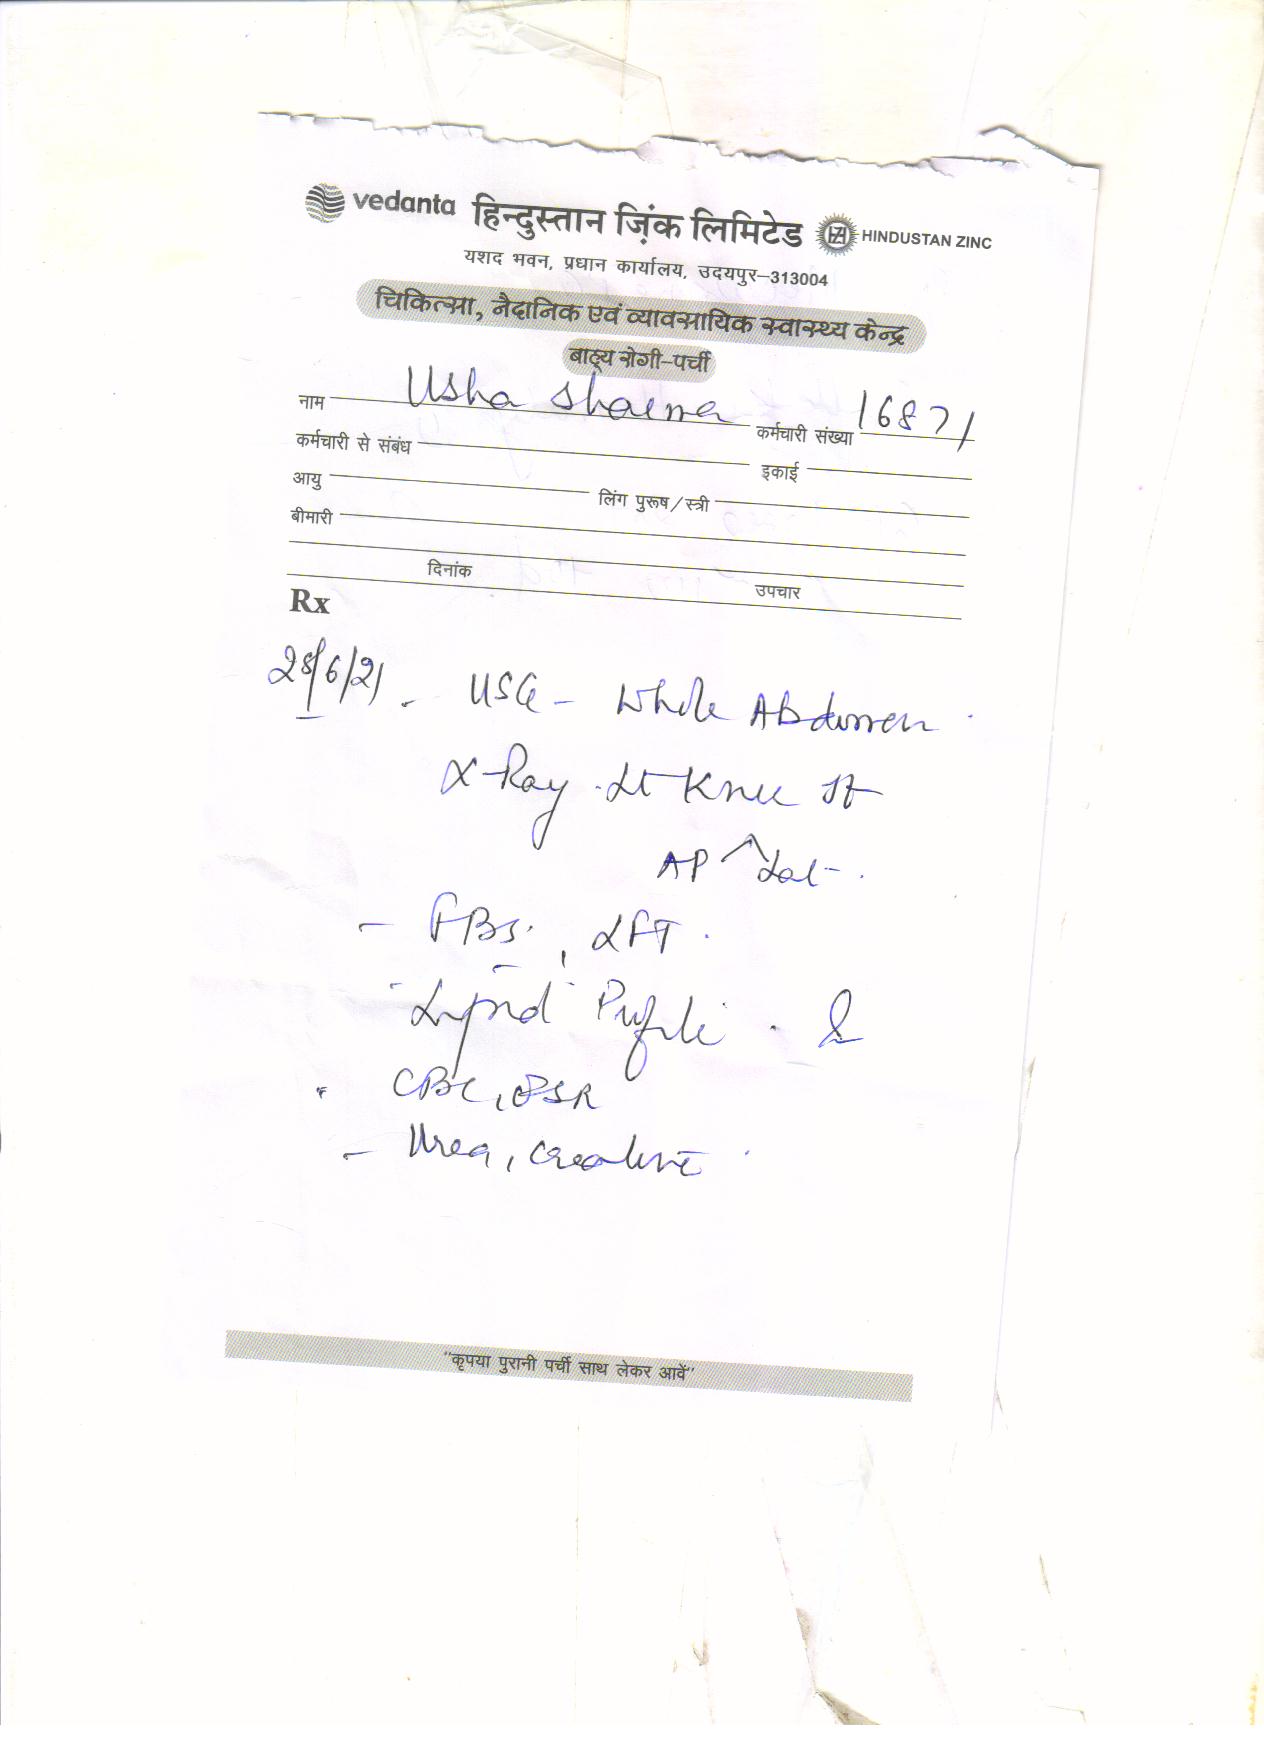 vedanta हिन्दुस्तान ज़िंक लिमिटेड HINDUSTAN ZINC
यशद भवन, प्रधान कार्यालय, उदयपुर–313004
चिकित्सा, नैदानिक एवं व्यावसायिक स्वास्थ्य केन्द्र
बाह्य रोगी-पर्ची
नाम Usha Sharma कर्मचारी संख्या 16871
कर्मचारी से संबंध इकाई
आयु लिंग पुरूष/स्त्री
बीमारी
दिनांक उपचार
Rx
28/6/21 - USG - Whole Abdomen
X-Ray Lt Knee Jt
AP Lat
- FBS, LFT
- Lipid Profile
CBC, ESR
- Urea, Creatine
"कृपया पुरानी पर्ची साथ लेकर आवें"